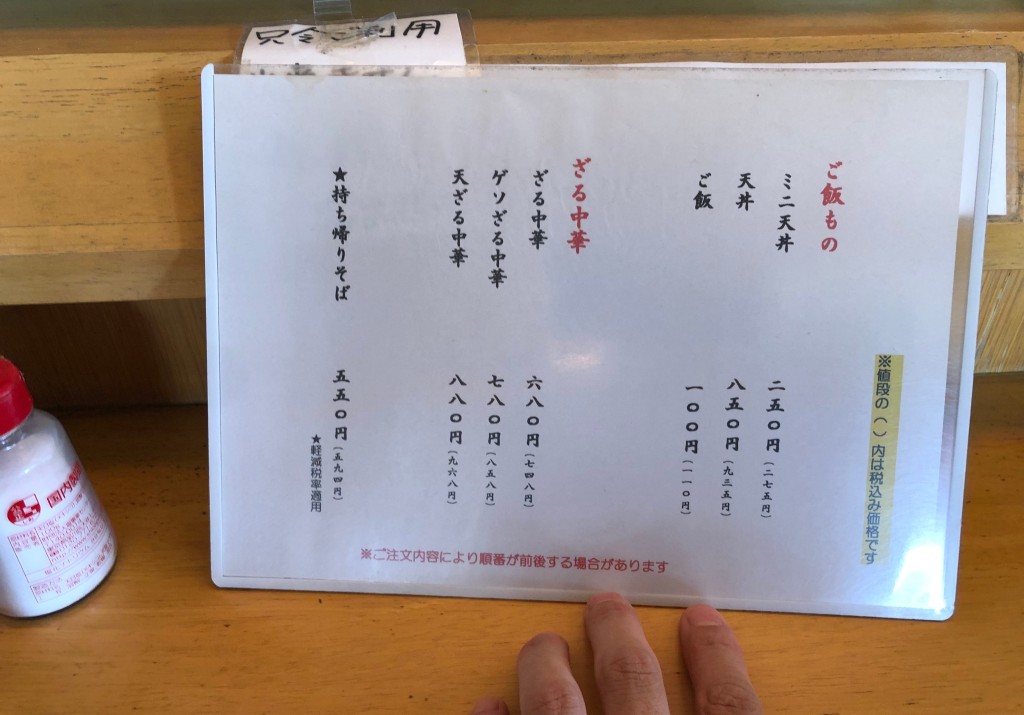 只今ご利用
※値段の（ ）内は税込み価格です
ご飯もの
ミニ天丼 二五〇円（二七五円）
天丼 八五〇円（九三五円）
ご飯 一〇〇円（一一〇円）
ざる中華
ざる中華 六八〇円（七四八円）
ゲソざる中華 七八〇円（八五八円）
天ざる中華 八八〇円（九六八円）
★持ち帰りそば 五五〇円（五九四円）
★軽減税率適用
※ご注文内容により順番が前後する場合があります
国内製